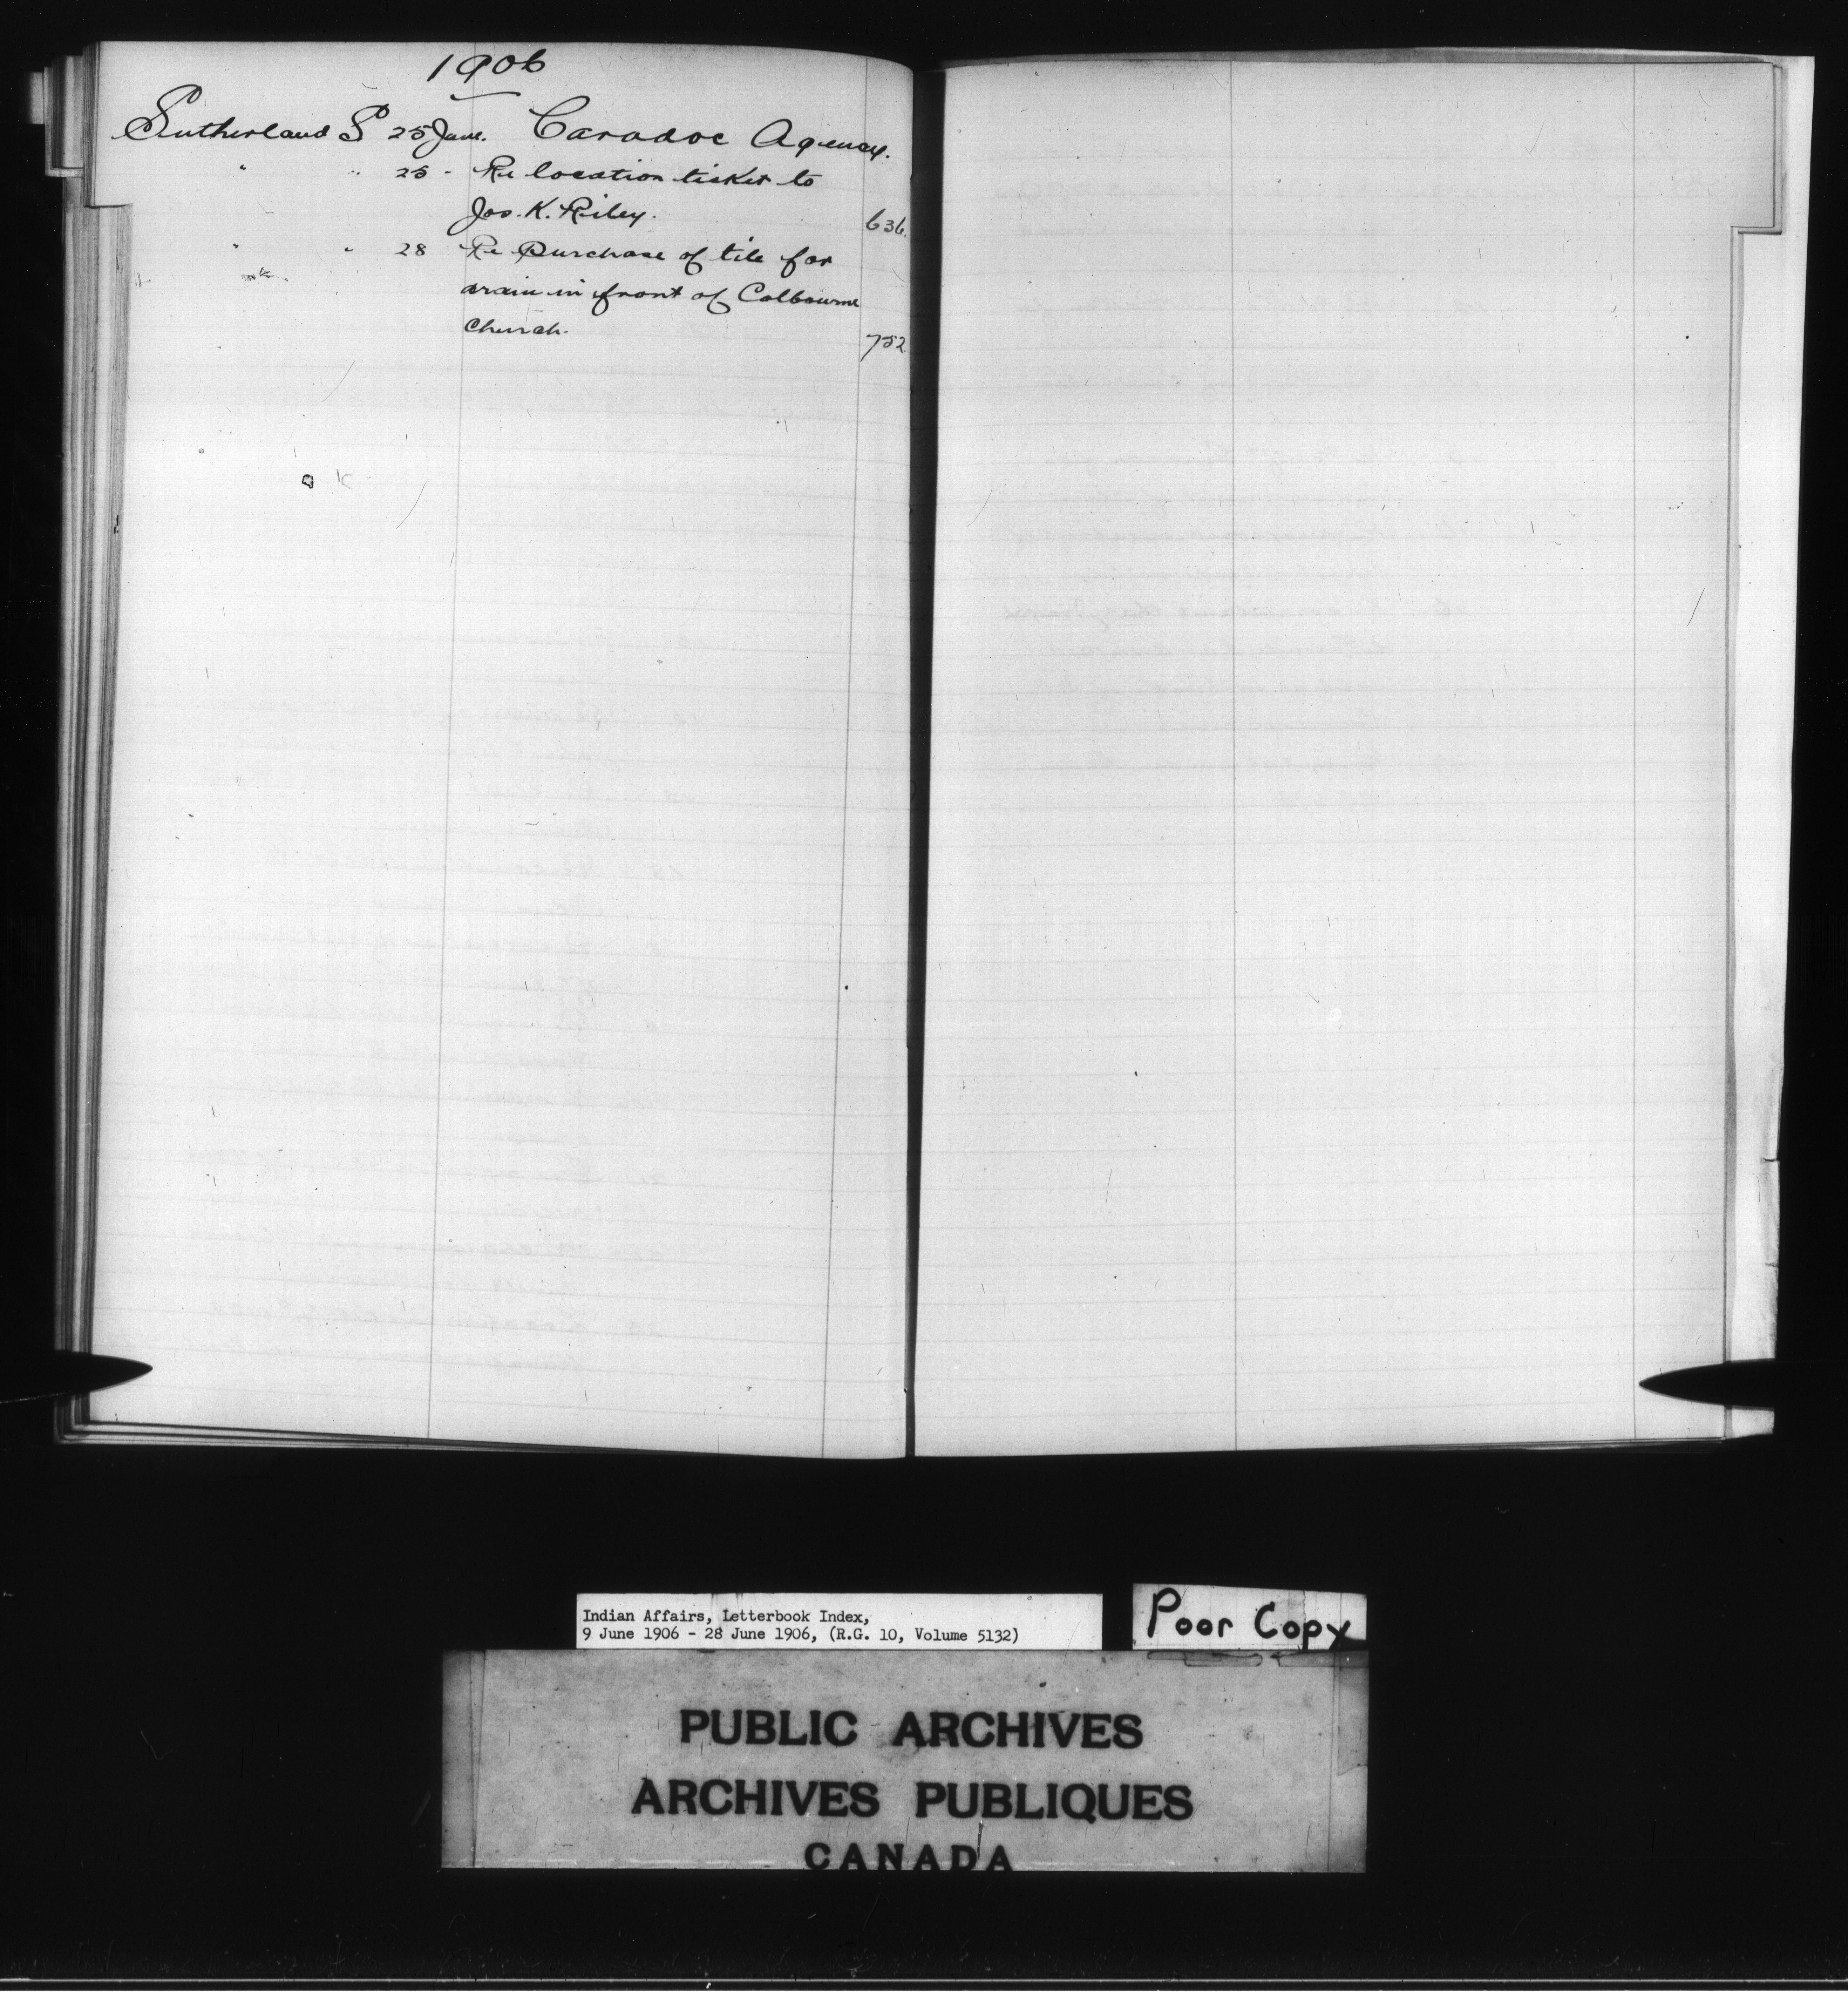 1906
Sutherland S 25 June. Caradoc Agency.
" " 25 - Re location ticket to
Jos. K. Riley. 636.
" " 28 Re Purchase of tile for
drain in front of Colbourne
Church. 752
Indian Affairs, Letterbook Index,
9 June 1906 - 28 June 1906, (R.G. 10, Volume 5132)
Poor Copy
PUBLIC ARCHIVES
ARCHIVES PUBLIQUES
CANADA